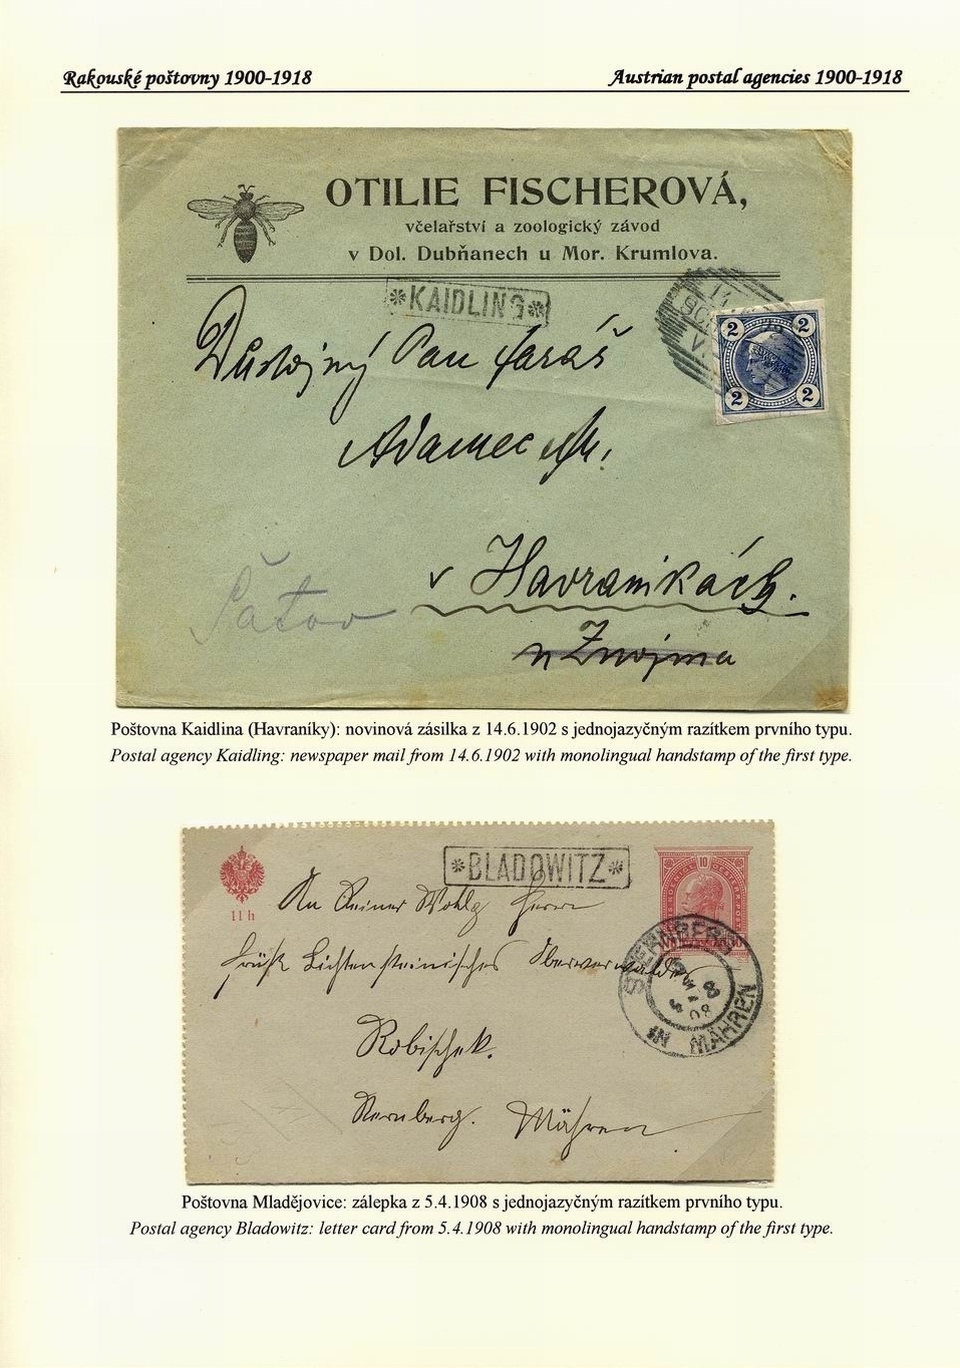 Rakouské poštovny 1900-1918
Austrian postal agencies 1900-1918
OTILIE FISCHEROVÁ,
včelařství a zoologický závod
v Dol. Dubňanech u Mor. Krumlova.
*KAIDLING*
2 2
2 2
Důstojný Pan farář
Adamec
v Havranikách.
Šatov
u Znojma
Poštovna Kaidlina (Havraníky): novinová zásilka z 14.6.1902 s jednojazyčným razítkem prvního typu.
Postal agency Kaidling: newspaper mail from 14.6.1902 with monolingual handstamp of the first type.
*BLADOWITZ*
10
11 h
An Seiner Wohlg Herrn
fürstl Lichtensteinischer Oberverwalter
Robischek.
Sternberg. Mähren
STERNBERG
IN MÄHREN
Poštovna Mladějovice: zálepka z 5.4.1908 s jednojazyčným razítkem prvního typu.
Postal agency Bladowitz: letter card from 5.4.1908 with monolingual handstamp of the first type.